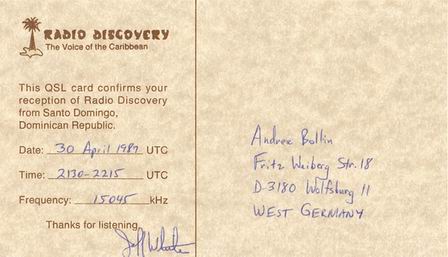 RADIO DISCOVERY
The Voice of the Caribbean
This QSL card confirms your
reception of Radio Discovery
from Santo Domingo,
Dominican Republic.
Date: 30 April 1987 UTC
Time: 2130-2215 UTC
Frequency: 15045 kHz
Thanks for listening,
Jeff White
Andrea Bollin
Fritz Weiberg Str. 18
D-3180 Wolfsburg 11
WEST GERMANY